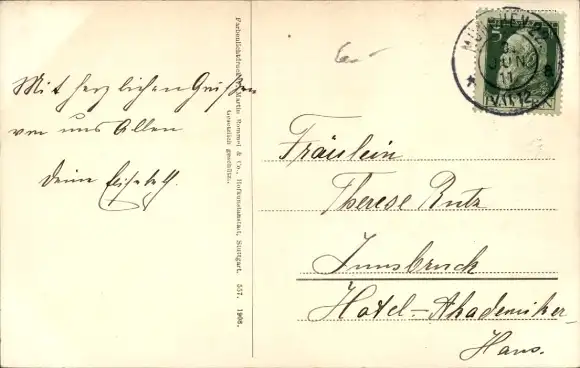 Mit herzlichen Grüßen
von uns Allen
Deine Elisabeth.
Farbenlichtdruck v. Martin Rommel & Co., Hofkunstanstalt, Stuttgart. 557. 1908.
Gesetzlich geschützt.
MÜNCHEN
JUN
11
5
Fräulein
Therese Rutz
Innsbruck
Hotel-Akademiker-
Haus.